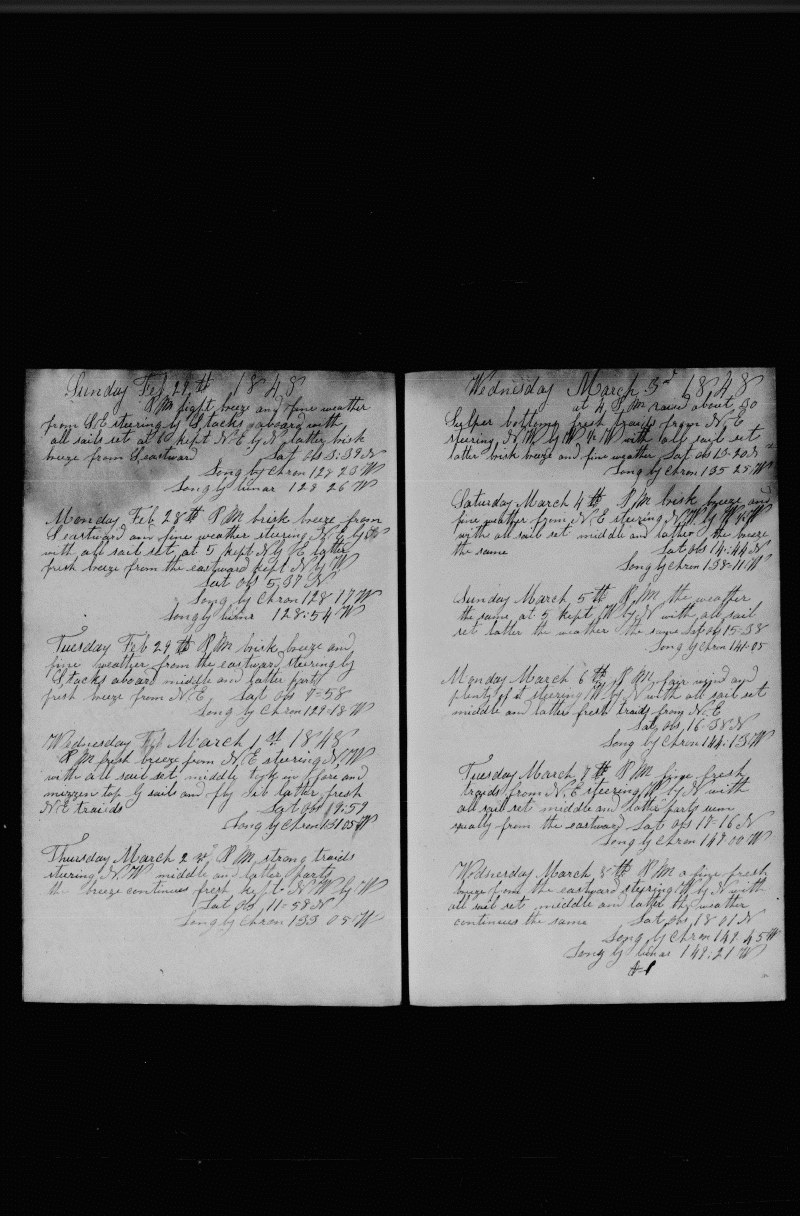 Sunday Feb 27th 1848
P M light breeze and fine weather
from S E steering by Stacks aboard with
all sails set at 10 kept N E by N latter brisk
breeze from S eastward Lat obs 3:39 N
Long by Chron 127 23 W
Long by lunar 128 26 W
Monday Feb 28th P M brisk breeze from
S eastward and fine weather steering N E by N
with all sail set, at 5 kept N by E latter
fresh breeze from the eastward kept N by W
Lat obs 5,37 N
Long by Chron 128 17 W
Long by lunar 128:54 W
Tuesday Feb 29th P M brisk breeze and
fine weather from the eastward steering by
Stacks aboard middle and latter party
fresh breeze from N E, Lat obs 7=58
Long by Chron 129=18 W
Wednesday Feb March 1st 1848
P M fresh breeze from N E steering N W
with all sail set, middle took in fore and
mizzen top G sails and fly Jib latter fresh
N E traids Lat obs 19:59
Long by Chron 131 05 W
Thursday March 2nd P M strong traids
steering N W middle and latter party
the breeze continues fresh kept N W by W
Lat obs 11=58 N
Long by Chron 133 05 W
Wednesday March 3d 1848
at 4 P M raised about 30
Sulper bottoms fresh traids from N E
steering N W by W 1/2 W with all sail set
latter brisk breeze and fine weather Lat obs 13-20 N
Long by Chron 135 25 W
Saturday March 4th P M brisk breeze and
fine weather from N E steering N W by W 1/2 W
with all sail set middle and latter the breeze
the same Lat obs 14:44 N
Long by Chron 138=11 W
Sunday March 5th P M the weather
the same, at 5 kept W by N with all sail
set latter the weather the same Lat ob 15=38
Long by Chron 141=05
Monday March 6th P M fair wind and
plenty of it steering W by N with all sail set
middle and latter fresh traids from N E
Lat obs 16=38 N
Long by Chron 144:13 W
Tuesday March 7th P M fine fresh
traids from N E steering W by N with
all sail set middle and latter party
squally from the eastward Lat obs 17-16 N
Long by Chron 147 00 W
Wednesday March 8th P M a fine fresh
breeze from the eastward steering W by N with
all sail set middle and latter the weather
continues the same Lat obs 18 01 N
Long by Chron 149 45 W
Long by lunar 149:21 W